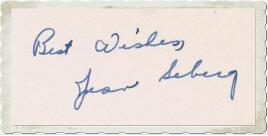 Best Wishes,
Jean Seberg